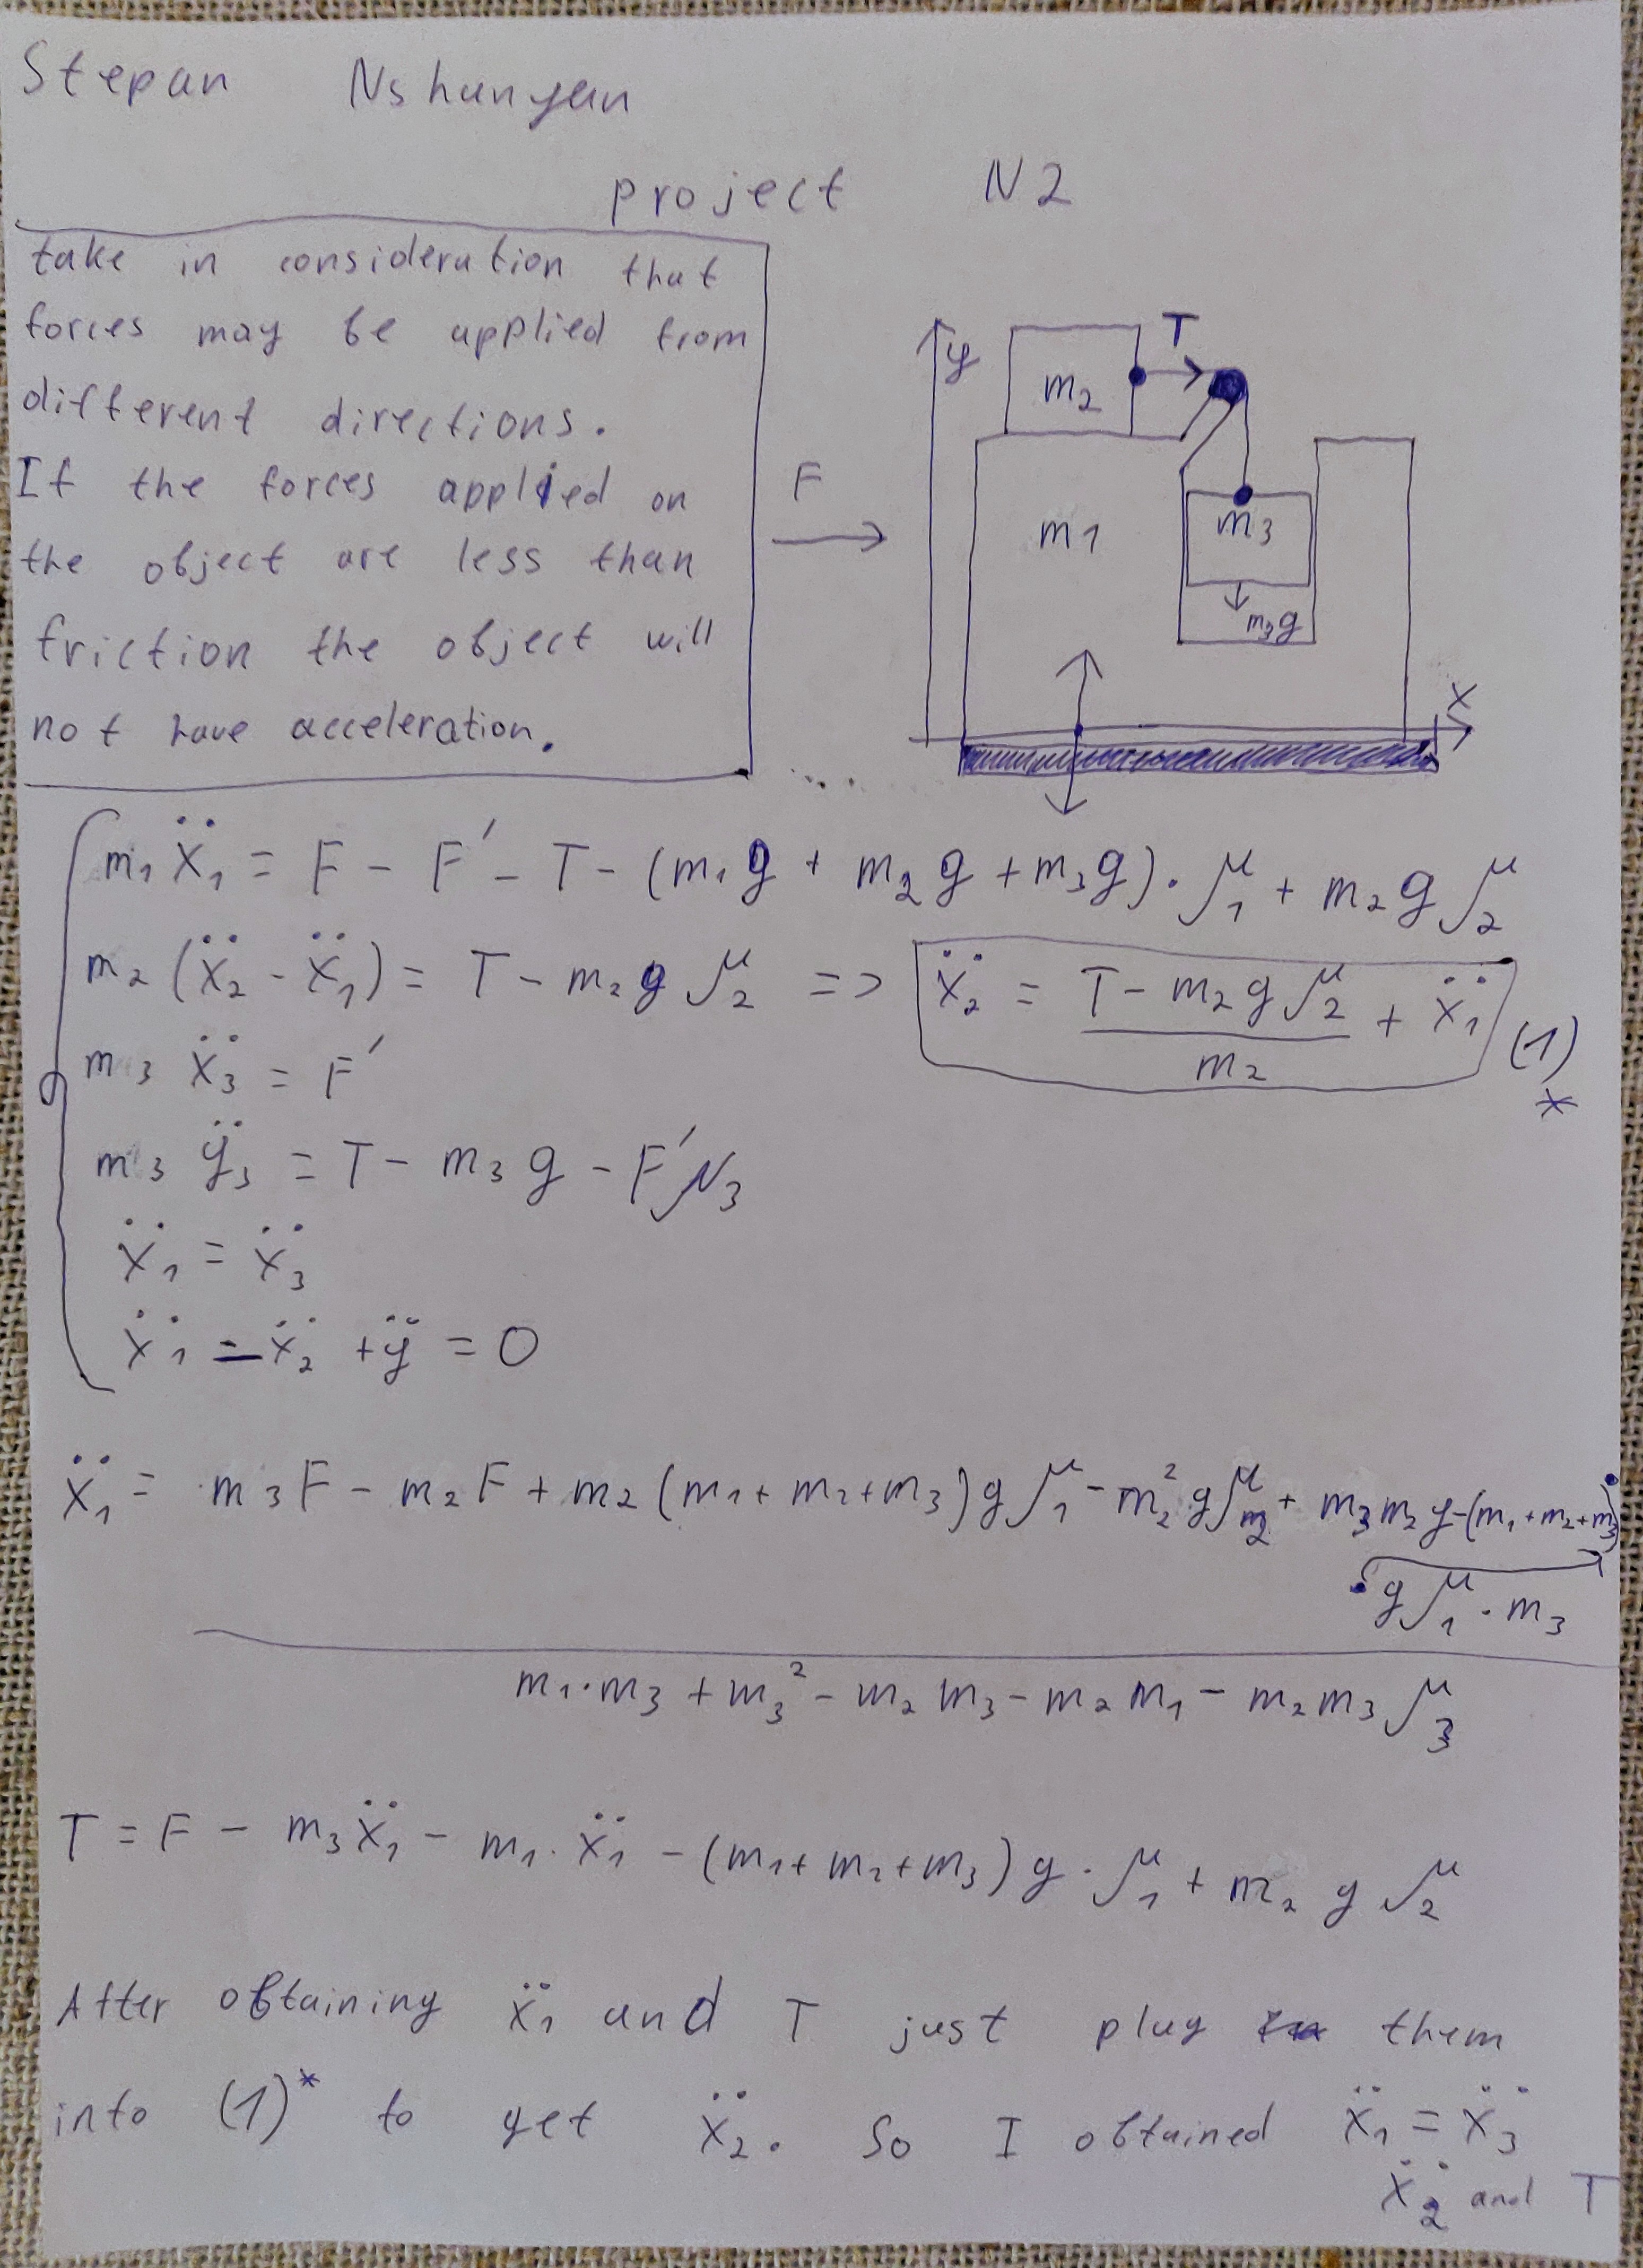 Stepan Nshanyan
project N2
take in consideration that
forces may be applied from
different directions.
If the forces applied on
the object are less than
friction the object will
not have acceleration.
F
y
T
m₂
m1
m₃
m₃g
X
m₁ẍ₁ = F - F' - T - (m₁g + m₂g + m₃g)·μ₁ + m₂gμ₂
m₂(ẍ₂ - ẍ₁) = T - m₂gμ₂ => ẍ₂ = (T - m₂gμ₂)/m₂ + ẍ₁ (1)*
m₃ẍ₃ = F'
m₃ÿ₃ = T - m₃g - F'μ₃
ẍ₁ = ẍ₃
ẍ₁ - ẍ₂ + ÿ = 0
ẍ₁ = m₃F - m₂F + m₂(m₁+m₂+m₃)gμ₁ - m₂²gμ₂ + m₃m₂g-(m₁+m₂+m₃)·
·gμ₁·m₃
m₁·m₃ + m₃² - m₂m₃ - m₂m₁ - m₂m₃μ₃
T = F - m₃ẍ₁ - m₁·ẍ₁ - (m₁+m₂+m₃)g·μ₁ + m₂gμ₂
After obtaining ẍ₁ and T just plug them
into (1)* to get ẍ₂. So I obtained ẍ₁ = ẍ₃
ẍ₂ and T